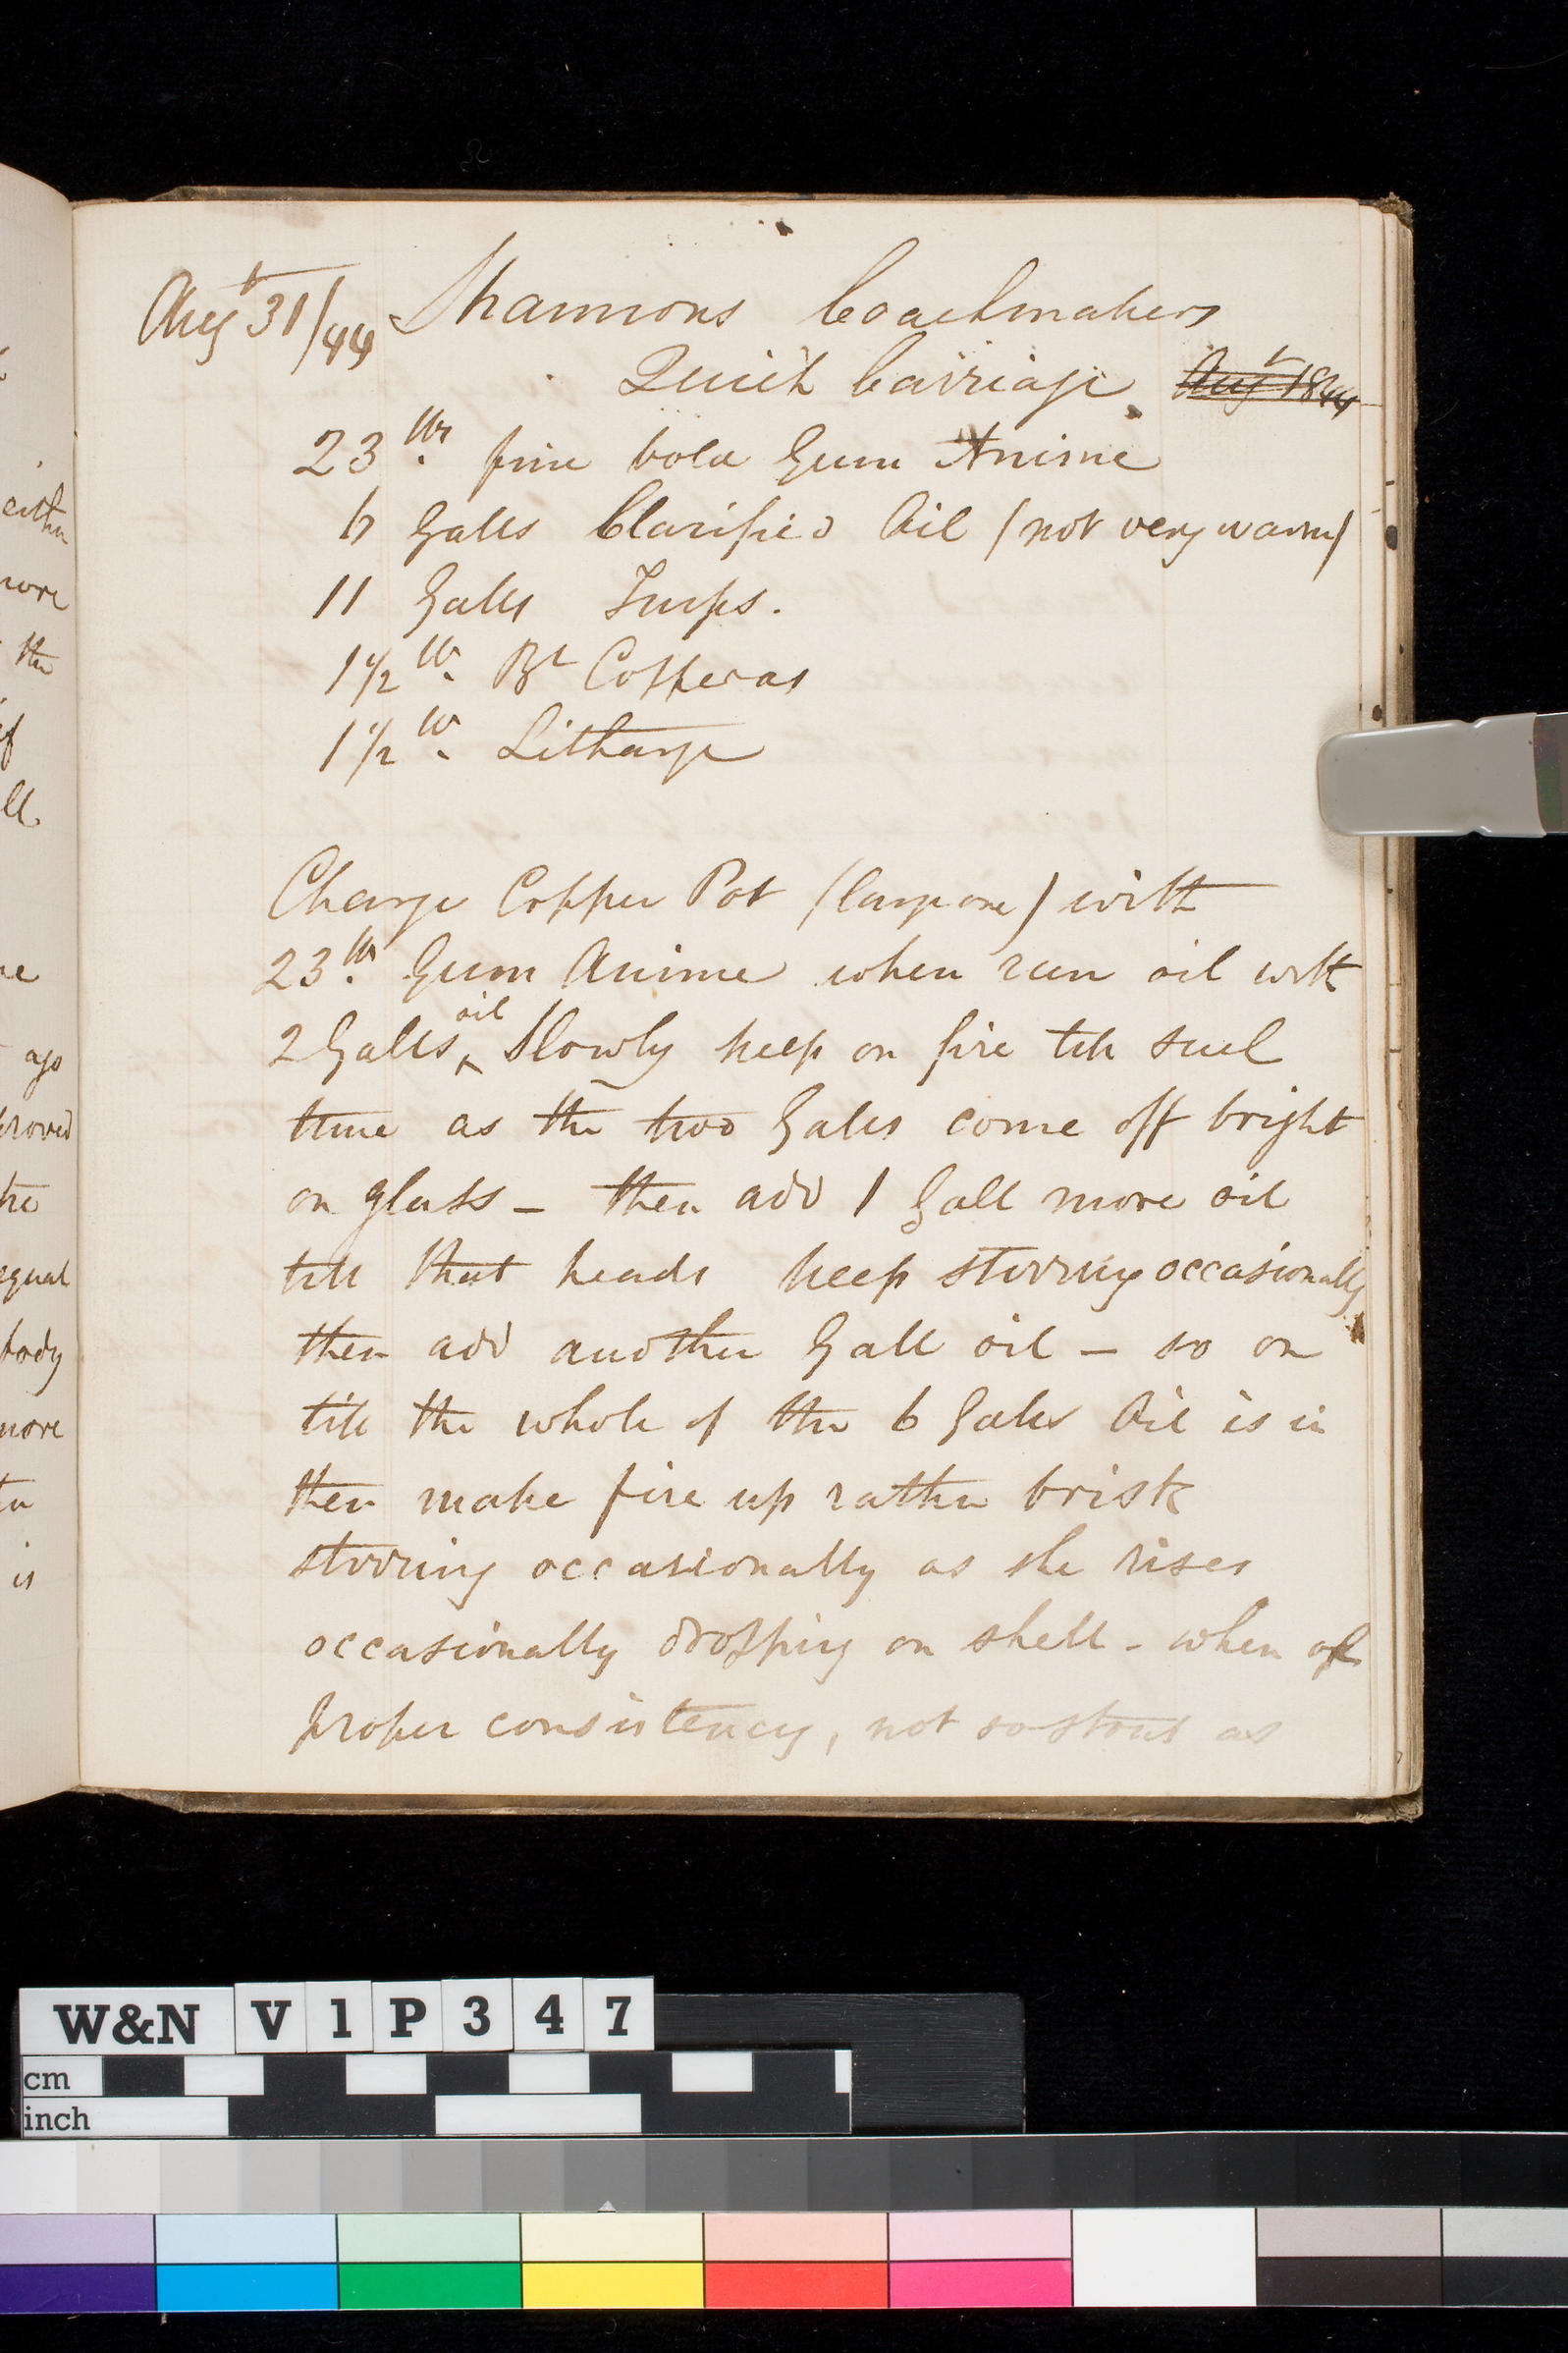 Augt 31/44 Shannons Coachmakers
Quick Carriage Augt 1844
23 lbs fine bold Gum Anime
6 Galls Clarified Oil (not very warm)
11 Galls Turps.
1 1/2 lb. Bt Copperas
1 1/2 lb. Litharge
Charge Copper Pot (large one) with
23 lbs Gum Anime when run oil with
2 Galls oil Slowly keep on fire till such
time as the two Galls come off bright
on glass – then add 1 Gall more oil
till that heads keep stirring occasionally
then add another Gall oil – so on
till the whole of the 6 Galls Oil is in
then make fire up rather brisk
stirring occasionally as she rises
occasionally dropping on shell – when of
proper consistency, not so stout as
eithr
more
the
if
ll.
ne
ago
proved
the
equal
body
more
in
is
W&N V 1 P 3 4 7
cm
inch